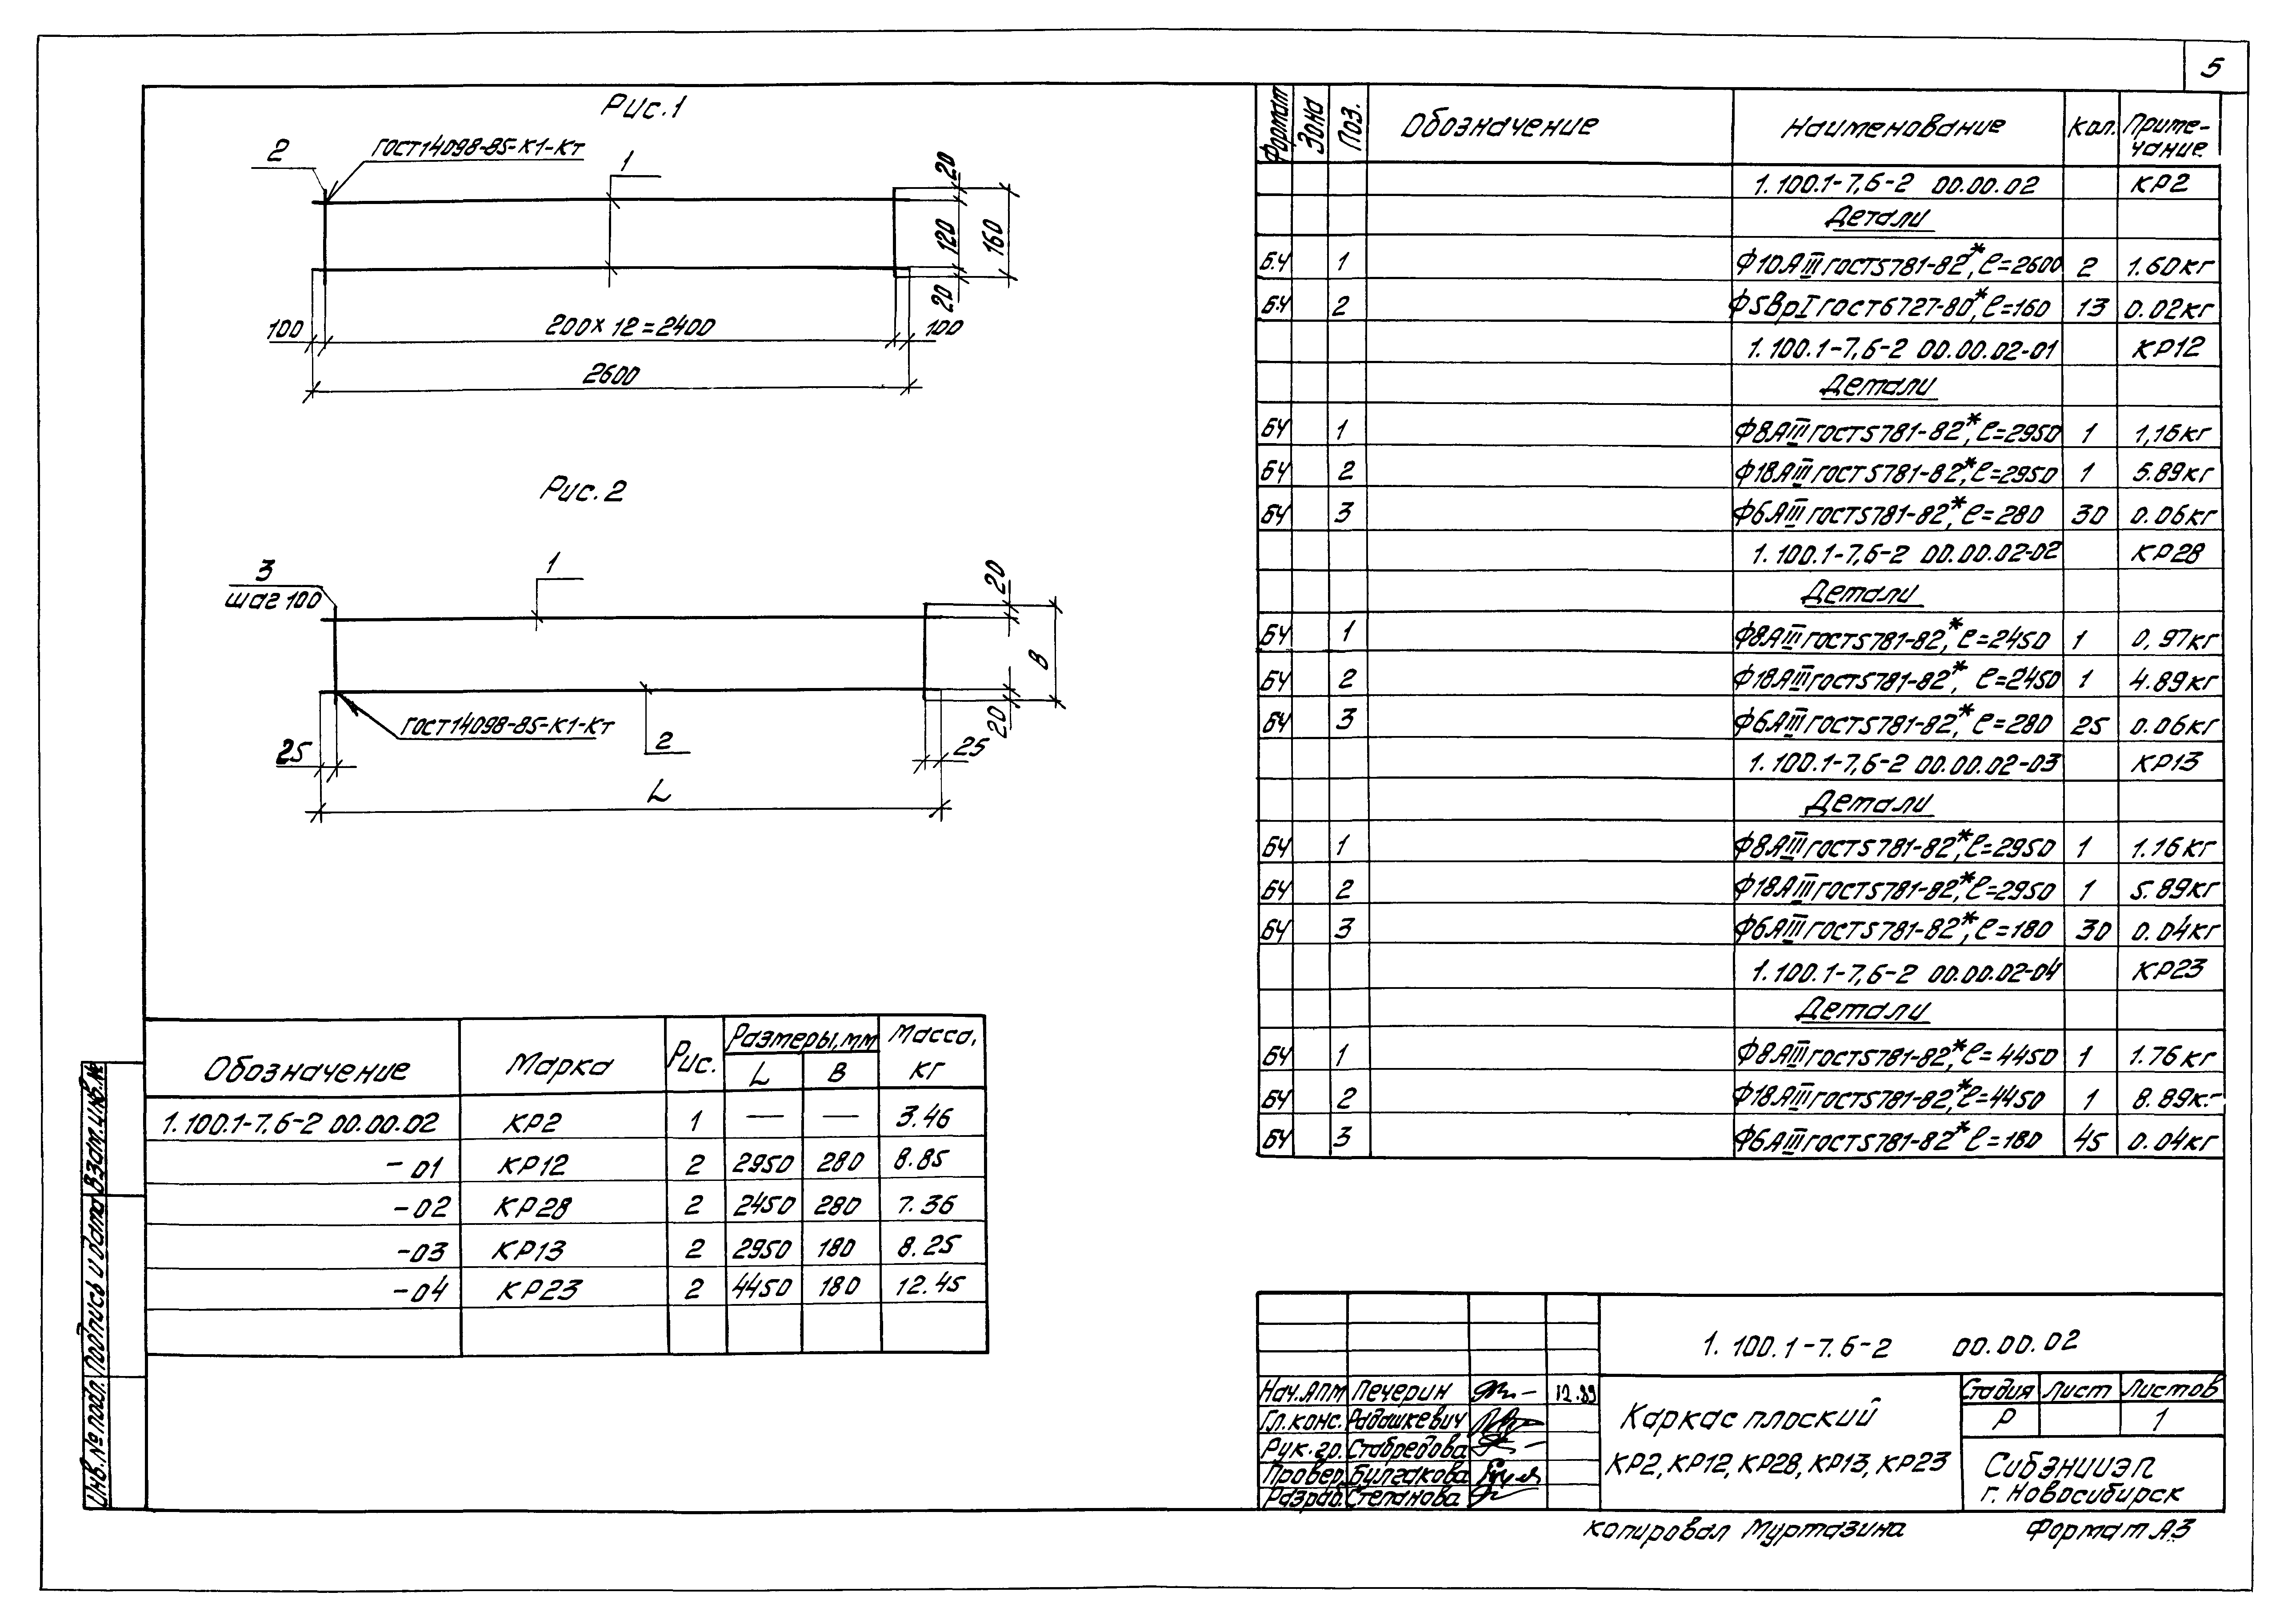 5
Рис.1
2
ГОСТ14098-85-К1-Кт
1
20
120
160
20
100
200x12=2400
100
2600
Рис.2
3
шаг 100
1
20
В
20
ГОСТ14098-85-К1-Кт
2
25
25
L
Формат Зона Поз. Обозначение Наименование Кол. Приме-
чание
1.100.1-7,6-2 00.00.02 КР2
Детали
Б.Ч 1 Ф10АIII ГОСТ5781-82*, ℓ=2600 2 1.60кг
БЧ 2 Ф5ВрI ГОСТ6727-80*, ℓ=160 13 0.02кг
1.100.1-7,6-2 00.00.02-01 КР12
Детали
БЧ 1 Ф8АIII ГОСТ5781-82*, ℓ=2950 1 1,16кг
БЧ 2 Ф18АIII ГОСТ5781-82*, ℓ=2950 1 5.89кг
БЧ 3 Ф6АIII ГОСТ5781-82*, ℓ=280 30 0.06кг
1.100.1-7,6-2 00.00.02-02 КР28
Детали
БЧ 1 Ф8АIII ГОСТ5781-82*, ℓ=2450 1 0,97кг
БЧ 2 Ф18АIII ГОСТ5781-82*, ℓ=2450 1 4.89кг
БЧ 3 Ф6АIII ГОСТ5781-82*, ℓ=280 25 0.06кг
1.100.1-7,6-2 00.00.02-03 КР13
Детали
БЧ 1 Ф8АIII ГОСТ5781-82*, ℓ=2950 1 1.16кг
БЧ 2 Ф18АIII ГОСТ5781-82*, ℓ=2950 1 5.89кг
БЧ 3 Ф6АIII ГОСТ5781-82*, ℓ=180 30 0.04кг
1.100.1-7,6-2 00.00.02-04 КР23
Детали
БЧ 1 Ф8АIII ГОСТ5781-82*, ℓ=4450 1 1.76кг
БЧ 2 Ф18АIII ГОСТ5781-82*, ℓ=4450 1 8.89кг
БЧ 3 Ф6АIII ГОСТ5781-82* ℓ=180 45 0.04кг
Обозначение Марка Рис. Размеры,мм Масса,
L В кг
1.100.1-7.6-2 00.00.02 КР2 1 — — 3.46
-01 КР12 2 2950 280 8.85
-02 КР28 2 2450 280 7.36
-03 КР13 2 2950 180 8.25
-04 КР23 2 4450 180 12.45
Взам.инв.№
Подпись и дата
Инв.№ подл.
1.100.1-7.6-2 00.00.02
Нач.АПМ Печерин 12.89
Гл.конс. Радашкевич
Рук.гр. Ставредова
Провер. Булгакова
Разраб. Степанова
Каркас плоский
КР2, КР12, КР28, КР13, КР23
Стадия Лист Листов
Р 1
СибЗНИИЭП
г. Новосибирск
копировал Муртазина Формат А3